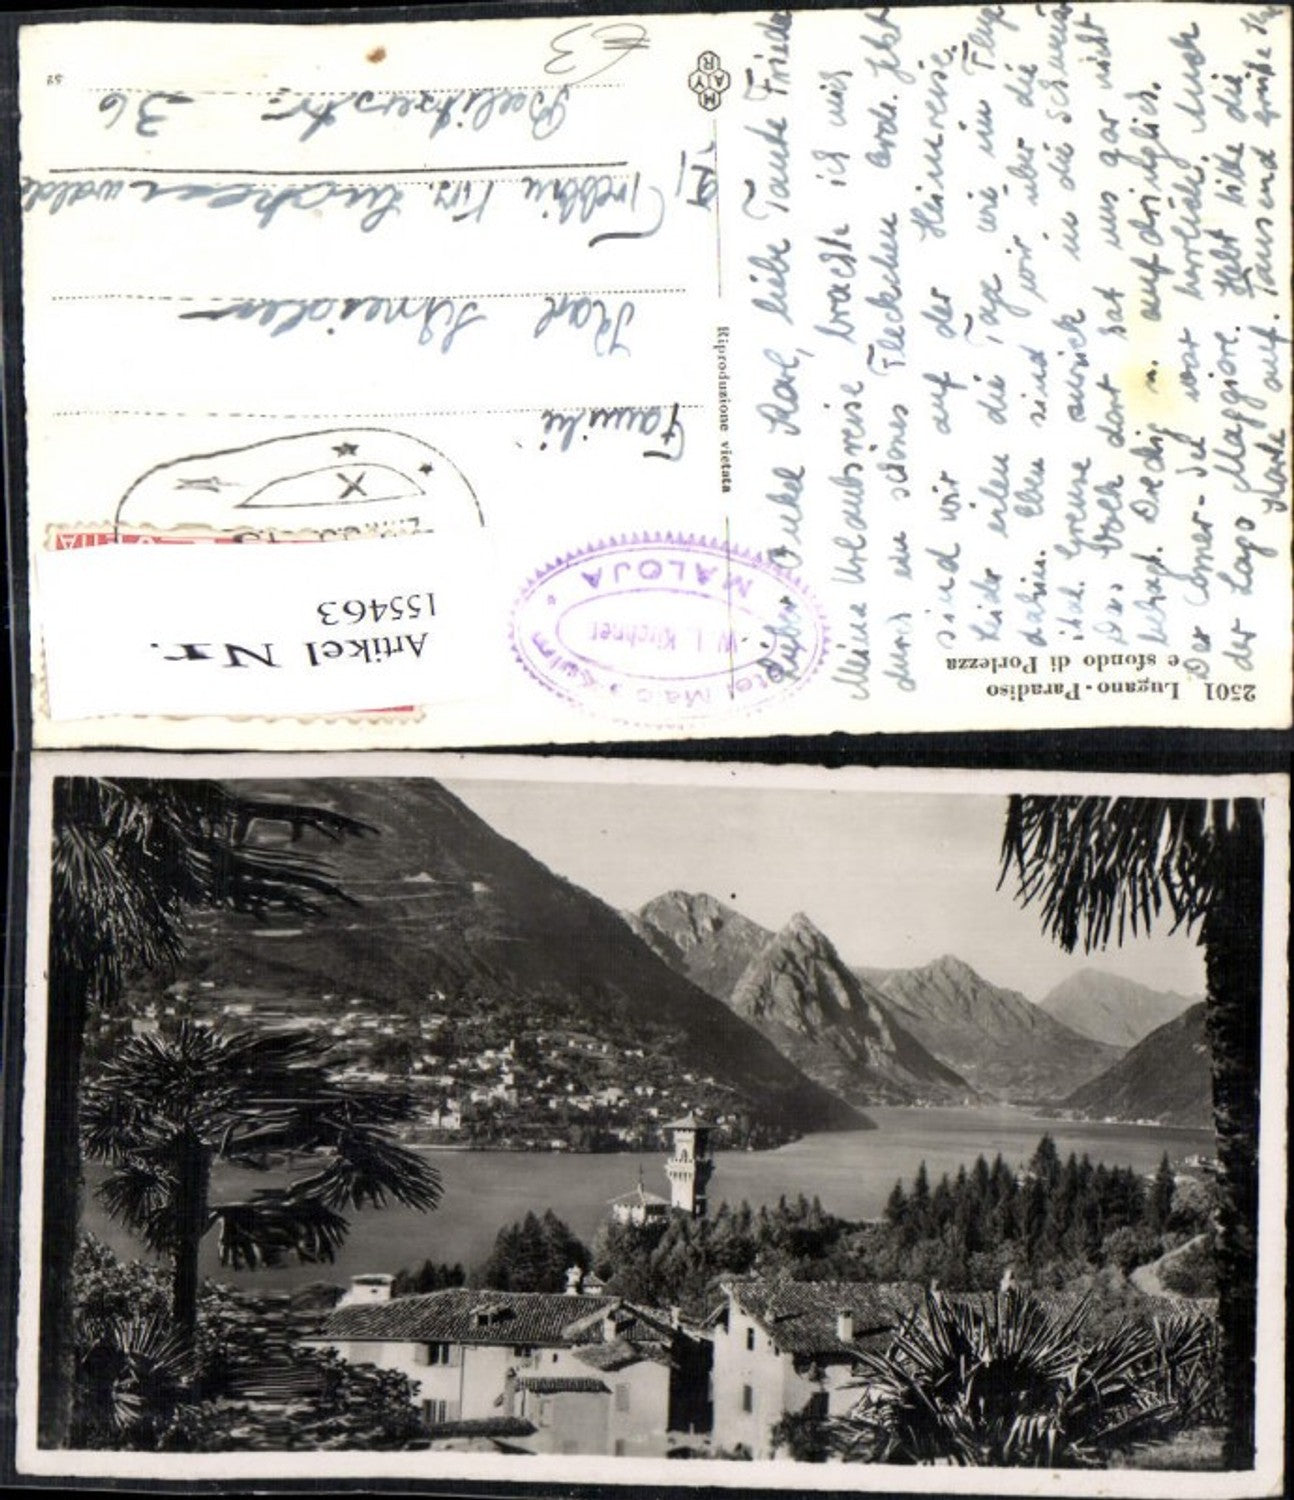 2501 Lugano - Paradiso
e sfondo di Porlezza
Lieber Onkel Karl, liebe Tante Friede
Meine Urlaubsreise brachte ich mich
durch ein schönes Fleckchen Erde. Jetzt
sind wir auf der Heimreise.
Leider eilen die Tage wie im Fluge
dahin. Eben sind wir über die
ital. Grenze zurück in die Schweiz
Das Volk dort hat uns gar nicht
behagt. Dreckig u. aufdringlich.
Der Comer-See war herrlich. Auch
der Lago Maggiore. Hebt bitte die
Karte auf. Tausend Grüße
Riproduzione vietata
MAYR
Familie
Karl Schneider
Trebbin Krs. Luckenwalde
Beelitzerstr. 36
52
€3
MALOJA
W. L. Kirchner
Artikel Nr.
155463